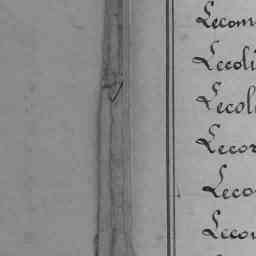 Lecom
Lecoli
Lecol
Lecor
Leco
Lecou